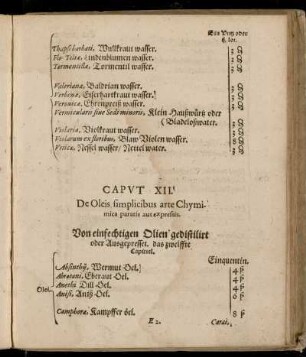 Ein Untz oder
Thapsi barbati. Wullkraut wasser.
Flo. Tiliæ. Lindenblumen wasser.
Tormentilla. Tormentil wasser.
Valeriana. Baldrian wasser.
Verbena. Eiserhartkraut wasser.
Veronica. Ehrnpreiß wasser.
Vermicularis siue Sedi minoris. Klein Haußwürtz oder
(Bladeloßwater.
Violaria. Violkraut wasser.
Violarum ex floribus. Blaw Violen wasser.
Vrtica. Nessel wasser/ Netteel water.
CAPVT XII.
De Oleis simplicibus arte Chymi-
mica paratis aut expressis.
Von einfechtigen Olien gedistilirt
oder Ausgepresset. das zwelffte
Capittel.
Einquentin.
Olei
Absinthij. Wermut Oel.
Abrotani. Eberaut Oel.
Anethi Dill Oel.
Anisi. Aniß Oel.
Camphoræ Kampffer öel.
E 2.